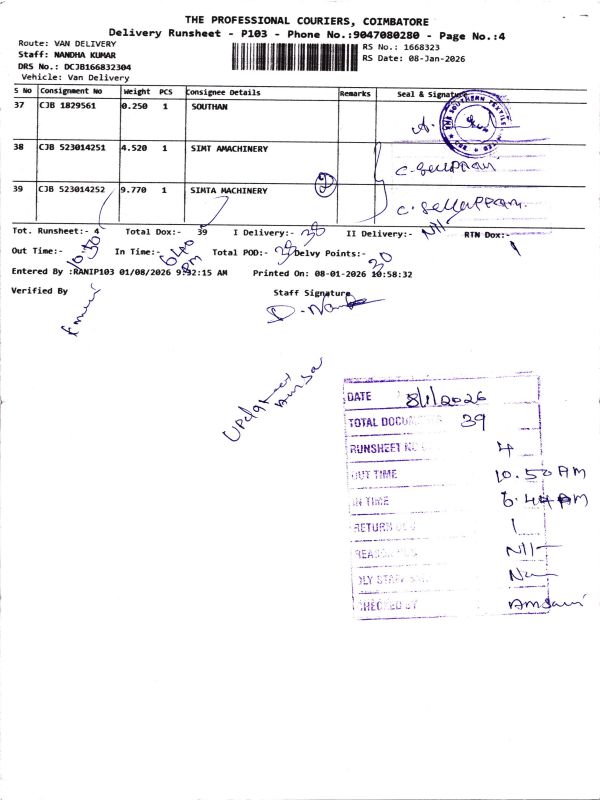 THE PROFESSIONAL COURIERS, COIMBATORE
Delivery Runsheet - P103 - Phone No.:9047080280 - Page No.:4
Route: VAN DELIVERY
Staff: NANDHA KUMAR
DRS No.: DCJB166832304
Vehicle: Van Delivery
RS No.: 1668323
RS Date: 08-Jan-2026
S No Consignment No Weight PCS Consignee Details Remarks Seal & Signature
37 CJB 1829561 0.250 1 SOUTHAN
38 CJB 523014251 4.520 1 SIMT AMACHINERY
C. Sellappan
39 CJB 523014252 9.770 1 SIMTA MACHINERY 2
C. Sellappan
Tot. Runsheet:- 4 Total Dox:- 39 I Delivery:- 38 II Delivery:- Nil RTN Dox:- 1
Out Time:- 10:50 In Time:- 6:40 PM Total POD:- 38 Delvy Points:- 30
Entered By :RANIP103 01/08/2026 9:32:15 AM Printed On: 08-01-2026 10:58:32
Verified By Staff Signature
D. Nand
DATE 8/1/2026
TOTAL DOCUM 39
RUNSHEET NO 4
OUT TIME 10.50 AM
IN TIME 6.44 PM
RETURN 1
REASON Nil
DLY STAFF
CHECKED BY Amsavi